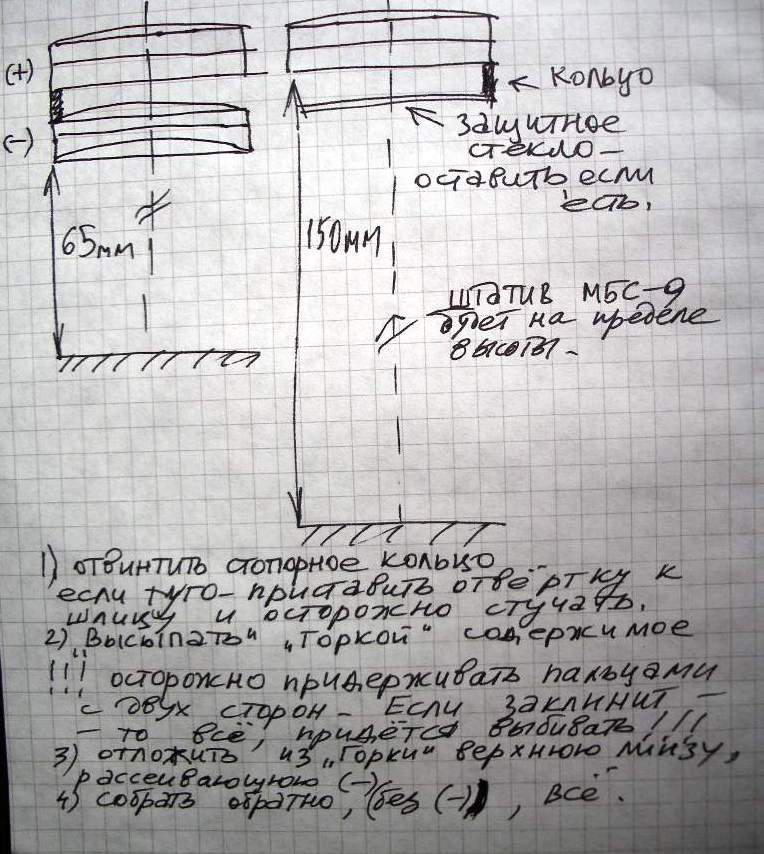 (+)
(-)
65мм
150мм
кольцо
защитное
стекло-
оставить если
есть.
штатив МБС-9
будет на пределе
высоты-
1) отвинтить стопорное кольцо
если туго-приставить отвёртку к
шлицу и осторожно стучать.
2) „Высыпать" „горкой" содержимое
!!! осторожно придерживать пальцами
с двух сторон- Если заклинит-
- то всё, придётся выбивать!!!
3) отложить из „горки" верхнюю линзу,
рассеивающюю (-)
4) собрать обратно, (без (-)), всё.